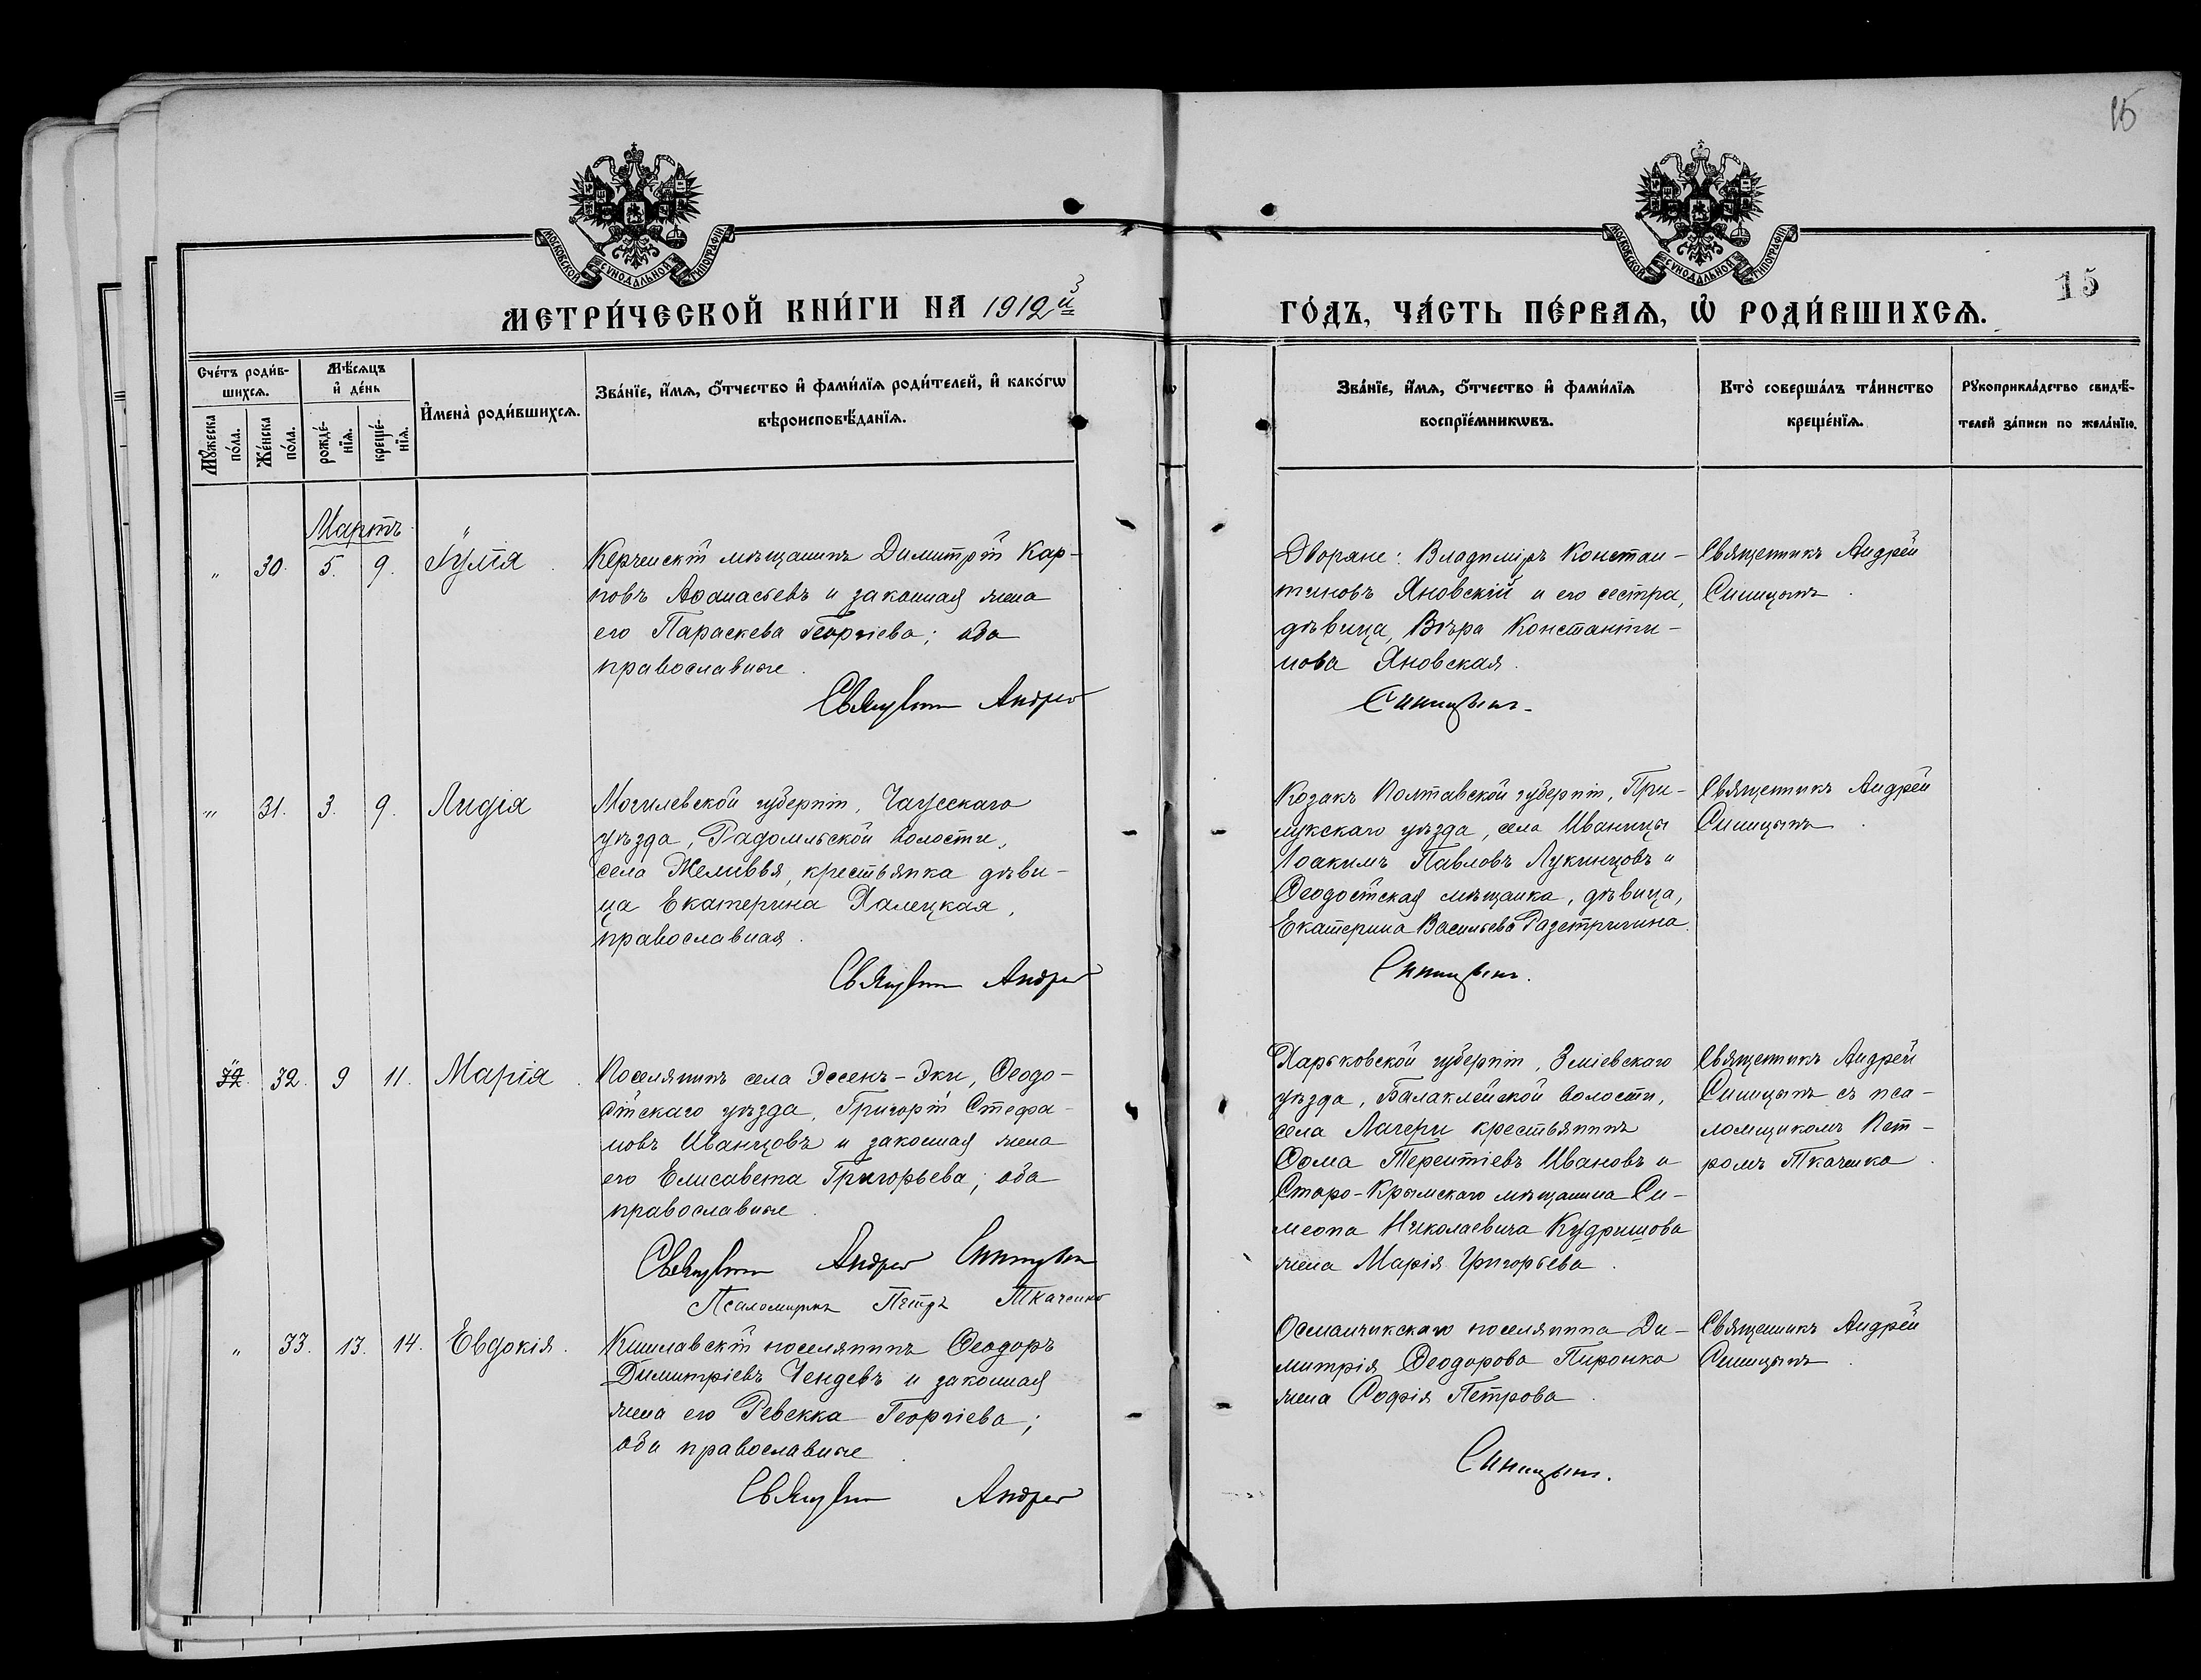 15
МОСКОВСКОЙ СѴНОДАЛЬНОЙ ТИПОГРАФІИ
МОСКОВСКОЙ СѴНОДАЛЬНОЙ ТИПОГРАФІИ
15
МЕТРИ́ЧЕСКОЙ КНИ́ГИ НА 1912й
ГО́ДЪ, ЧА́СТЬ ПЕ́РВАѦ, Ѡ҆ РОДИ́ВШИХСѦ.
Сче́тъ роди́в-
шихсѧ.
Мѣ́сѧцъ
и҆ де́нь
Мꙋ́жеска
по́ла.
Же́нска
по́ла.
рожде́-
нїѧ.
креще́-
нїѧ.
И҆мена̀ роди́вшихсѧ.
Зва́нїе, и҆́мѧ, ѻ҆́тчество и҆ фами́лїѧ роди́телей, и҆ како́гѡ
вѣроисповѣ́данїѧ.
Зва́нїе, и҆́мѧ, ѻ҆́тчество и҆ фами́лїѧ
воспрїе́мникѡвъ.
Кто̀ соверша́лъ та́инство
креще́нїѧ.
Рꙋкоприкла́дство свидѣ́-
телей за́писи по жела́нїю.
Мартъ
" 30. 5. 9. Іулія
Керченскій мѣщанинъ Димитрій Кар-
повъ Аѳанасьевъ и законная жена
его Параскева Георгіева; оба
православные.
Священникъ Андрей
Дворяне: Владиміръ Констан-
тиновъ Яновскій и его сестра,
дѣвица, Вѣра Константи-
нова Яновская.
Синицынъ.
Священникъ Андрей
Синицынъ.
" 31. 3. 9. Лидія
Могилевской губерніи, Чаусскаго
уѣзда, Радомльской волости,
села Желивья, крестьянка дѣви-
ца Екатерина Халецкая,
православная.
Священникъ Андрей
Козакъ Полтавской губерніи, При-
лукскаго уѣзда, села Иваницы
Іоакимъ Павловъ Лукинцовъ и
Ѳеодосійская мѣщанка, дѣвица,
Екатерина Васильева Разстригина.
Синицынъ.
Священникъ Андрей
Синицынъ.
" 32 32. 9 11. Марія.
Поселянинъ села Эссенъ-Эки, Ѳеодо-
сійскаго уѣзда, Григорій Стефа-
новъ Иванцовъ и законная жена
его Елисавета Григорьева; оба
православные.
Священникъ Андрей Синицынъ
Псаломщикъ Петръ Ткаченко
Харьковской губерніи, Зміевскаго
уѣзда, Балаклейской волости,
села Лагери крестьянинъ
Ѳома Терентіевъ Ивановъ и
Старо-Крымскаго мѣщанина Си-
меона Николаевича Кудряшова
жена Марія Григорьева.
Священникъ Андрей
Синицынъ съ пса-
ломщикомъ Пет-
ромъ Ткаченко.
" 33. 13. 14. Евдокія.
Кишлавскій поселянинъ Ѳеодоръ
Димитріевъ Чендевъ и законная
жена его Ревекка Георгіева;
оба православные.
Священникъ Андрей
Османчикскаго поселянина Ди-
митрія Ѳеодорова Пиронко
жена Софія Петрова.
Синицынъ.
Священникъ Андрей
Синицынъ.